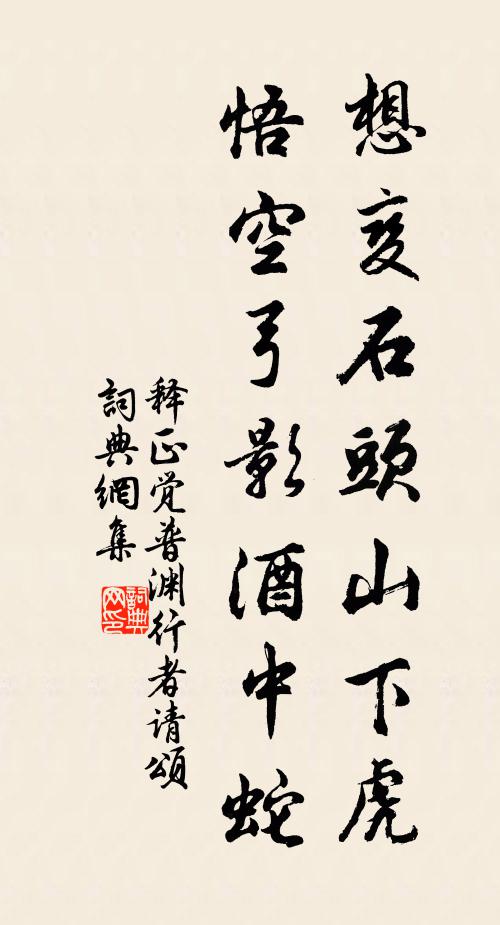 想变石頭山下虎
悟空弓影酒中蛇
释正觉普渊行者请頌
詞典網集
詞典网印